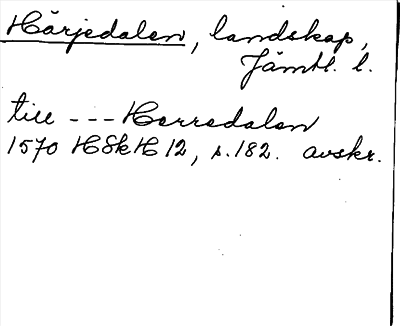 Härjedalen, landskap,
Jämtl. l.
till --- Herredalen
1570 HSkH 12, s. 182. avskr.